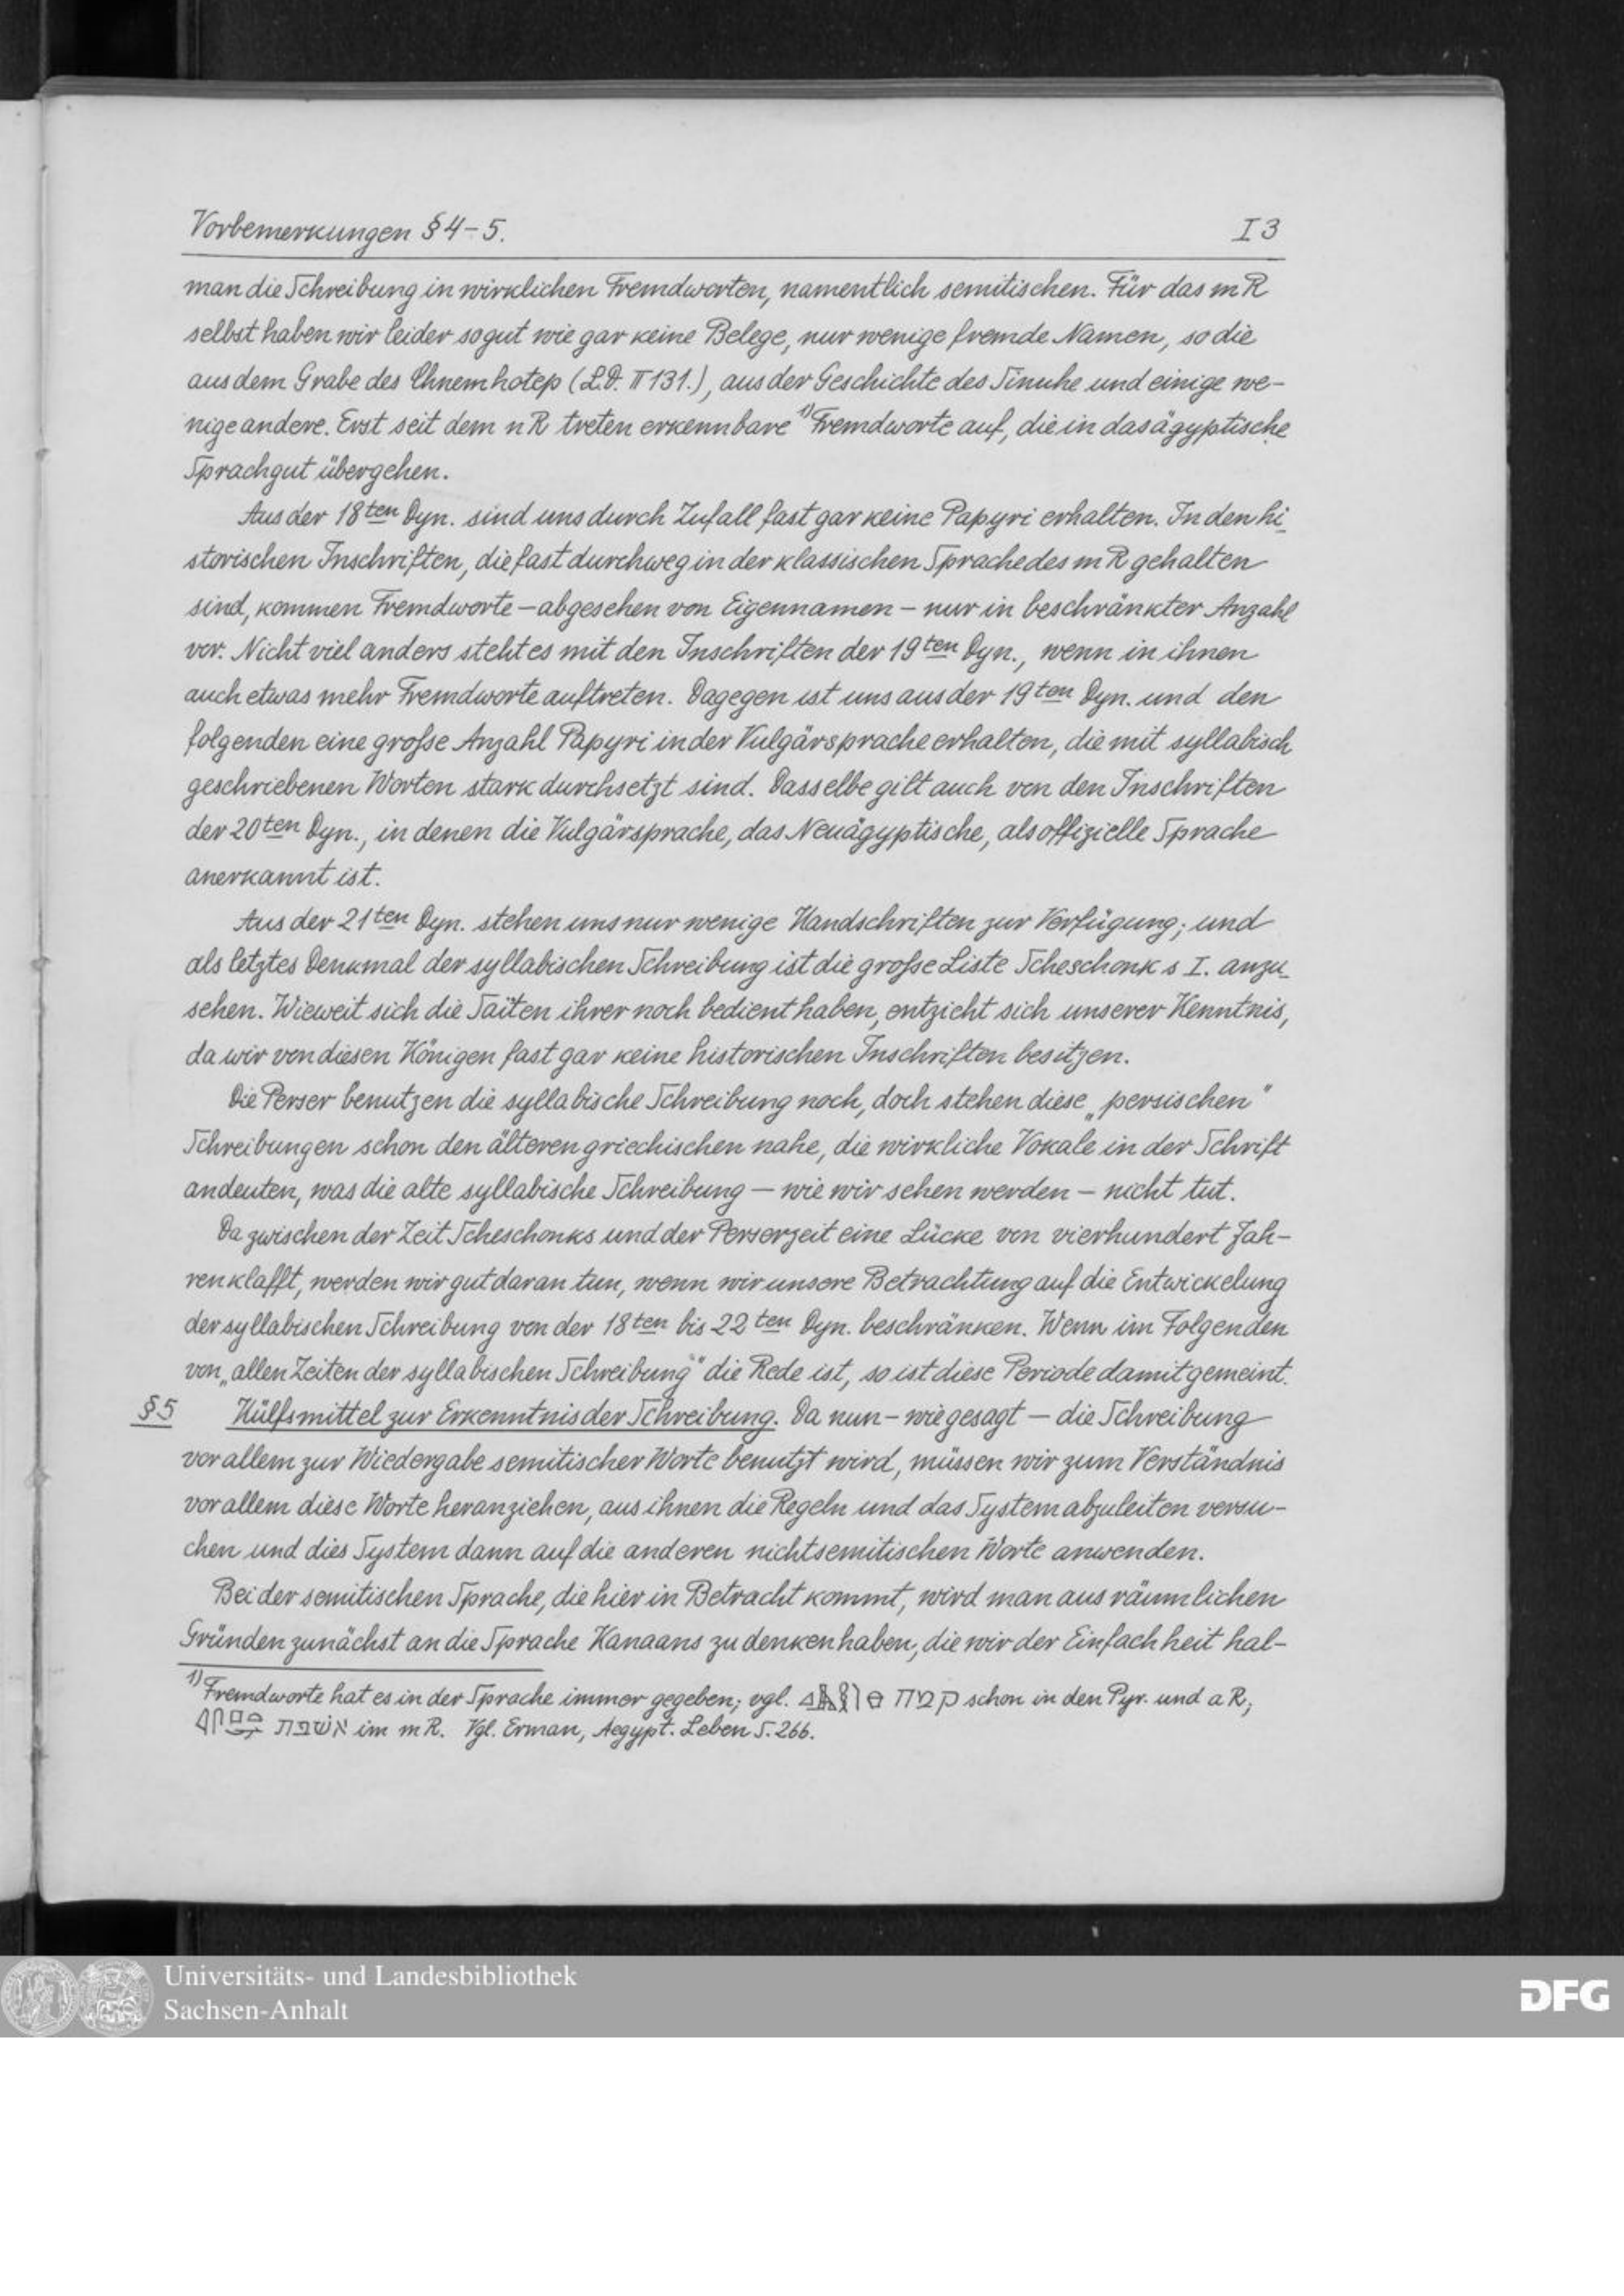 Vorbemerkungen § 4-5. I 3
man die Schreibung in wirklichen Fremdworten, namentlich semitischen. Für das m R
selbst haben wir leider so gut wie gar keine Belege, nur wenige fremde Namen, so die
aus dem Grabe des Chnemhotep (L.D. II 131.), aus der Geschichte des Sinuhe und einige we-
nige andere. Erst seit dem n R treten erkennbare ¹⁾ Fremdworte auf, die in das ägyptische
Sprachgut übergehen.
Aus der 18ten Dyn. sind uns durch Zufall fast gar keine Papyri erhalten. In den hi-
storischen Inschriften, die fast durchweg in der klassischen Sprache des m R gehalten
sind, kommen Fremdworte – abgesehen von Eigennamen – nur in beschränkter Anzahl
vor. Nicht viel anders steht es mit den Inschriften der 19ten Dyn., wenn in ihnen
auch etwas mehr Fremdworte auftreten. Dagegen ist uns aus der 19ten Dyn. und den
folgenden eine große Anzahl Papyri in der Vulgärsprache erhalten, die mit syllabisch
geschriebenen Worten stark durchsetzt sind. Dasselbe gilt auch von den Inschriften
der 20ten Dyn., in denen die Vulgärsprache, das Neuägyptische, als offizielle Sprache
anerkannt ist.
Aus der 21ten Dyn. stehen uns nur wenige Handschriften zur Verfügung; und
als letztes Denkmal der syllabischen Schreibung ist die große Liste Scheschonks I. anzu-
sehen. Wieweit sich die Saïten ihrer noch bedient haben, entzieht sich unserer Kenntnis,
da wir von diesen Königen fast gar keine historischen Inschriften besitzen.
Die Perser benutzen die syllabische Schreibung noch, doch stehen diese „persischen"
Schreibungen schon den älteren griechischen nahe, die wirkliche Vokale in der Schrift
andeuten, was die alte syllabische Schreibung – wie wir sehen werden – nicht tut.
Da zwischen der Zeit Scheschonks und der Perserzeit eine Lücke von vierhundert Jah-
ren klafft, werden wir gut daran tun, wenn wir unsere Betrachtung auf die Entwickelung
der syllabischen Schreibung von der 18ten bis 22ten Dyn. beschränken. Wenn im Folgenden
von „allen Zeiten der syllabischen Schreibung" die Rede ist, so ist diese Periode damit gemeint.
§ 5 Hülfsmittel zur Erkenntnis der Schreibung. Da nun – wie gesagt – die Schreibung
vor allem zur Wiedergabe semitischer Worte benutzt wird, müssen wir zum Verständnis
vor allem diese Worte heranziehen, aus ihnen die Regeln und das System abzuleiten versu-
chen und dies System dann auf die anderen nichtsemitischen Worte anwenden.
Bei der semitischen Sprache, die hier in Betracht kommt, wird man aus räumlichen
Gründen zunächst an die Sprache Kanaans zu denken haben, die wir der Einfachheit hal-
¹⁾ Fremdworte hat es in der Sprache immer gegeben; vgl. קמח schon in den Pyr. und a R;
אשפת im m R. Vgl. Erman, Aegypt. Leben S. 266.
Universitäts- und Landesbibliothek
Sachsen-Anhalt
DFG